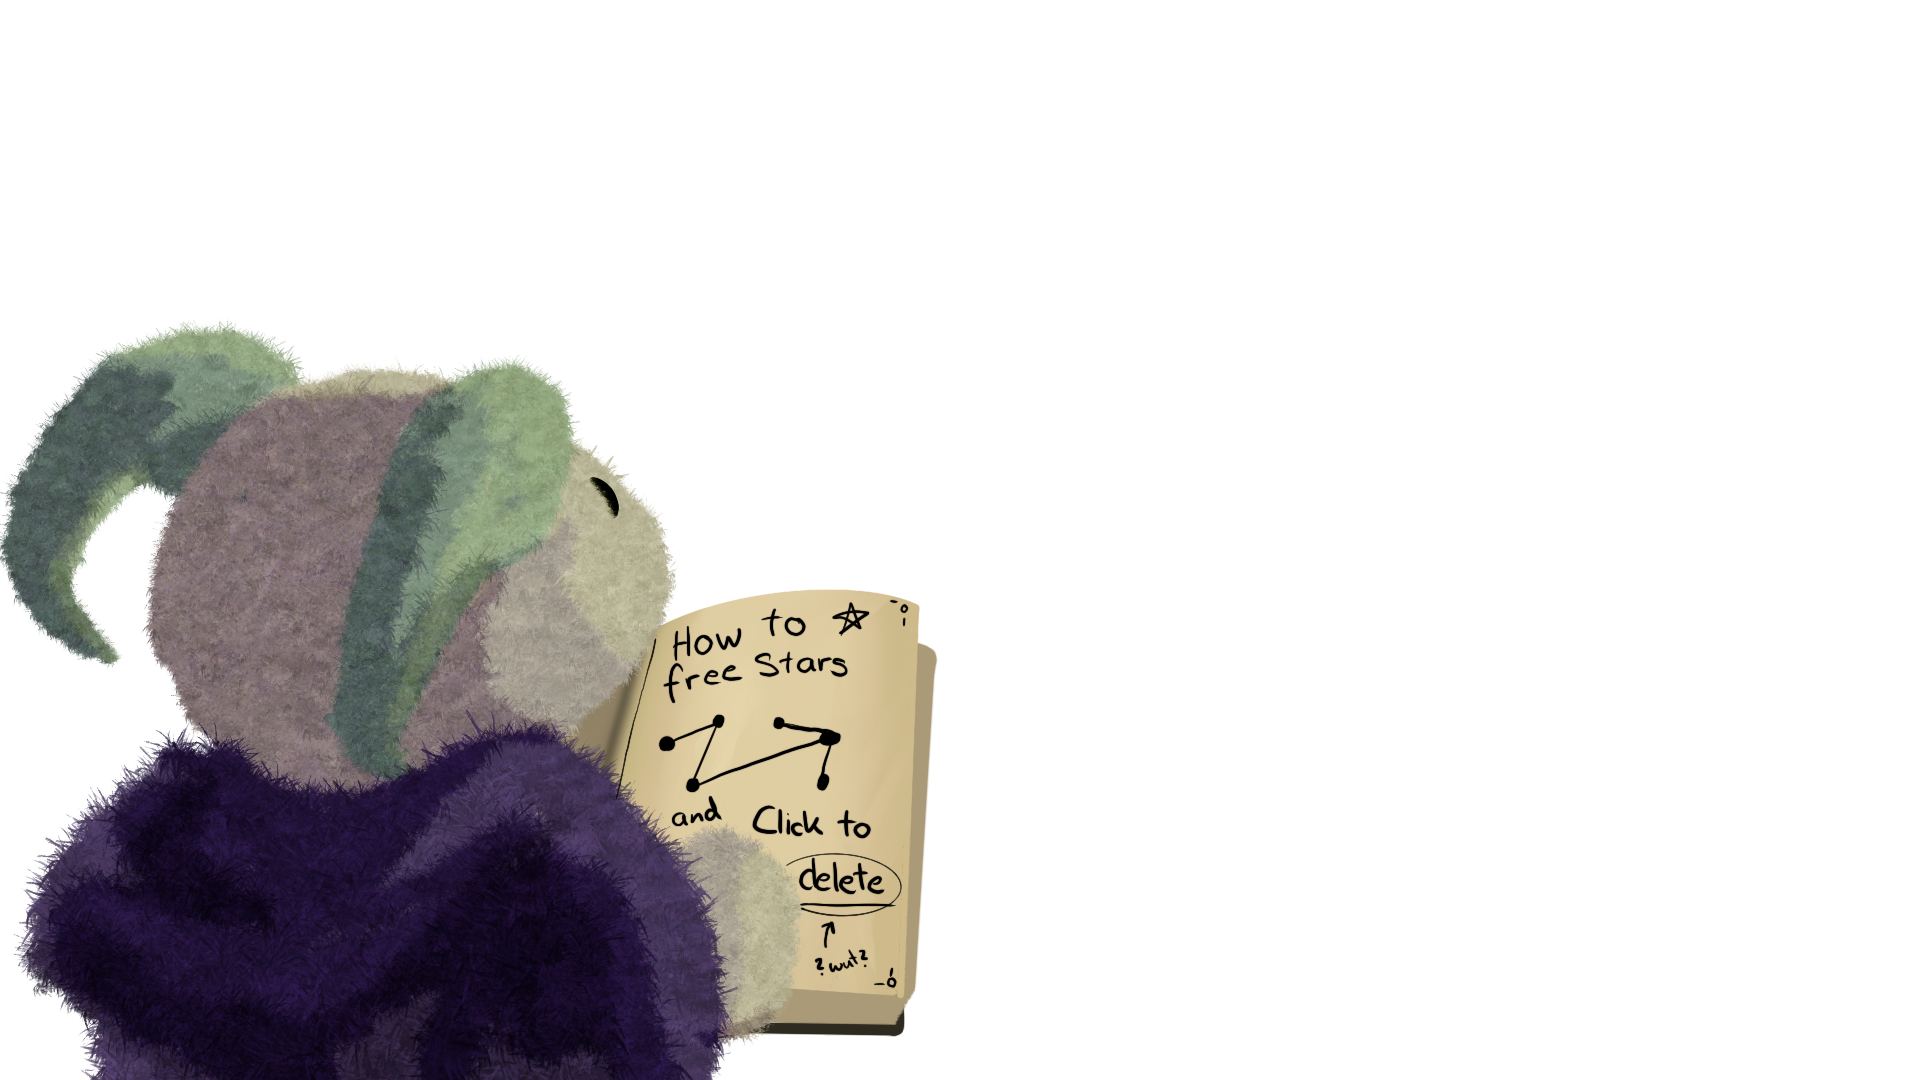 How to
free Stars
and Click to
delete
?wut?